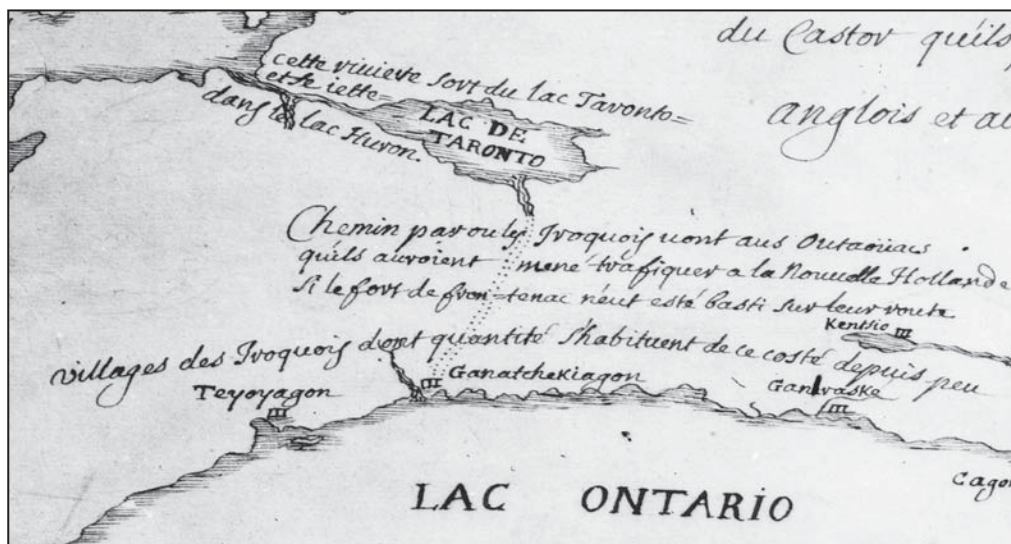 du Castor qu'ils
anglois et au
cette riviere sort du lac Taronto=
et se iette=
dans le lac Huron.
LAC DE
TARONTO
Chemin par ou les Iroquois vont aus Outaoüacs
qu'ils auroient mené trafiquer a la Nouvelle Hollande
Si le fort de fron=tenac n'eut esté basti sur leur route
Kentsio
villages des Iroquois dont quantité s'habituent de ce costé depuis peu
Ganatchekiagon
Teyoyagon
Ganeraske
Cagon
LAC ONTARIO